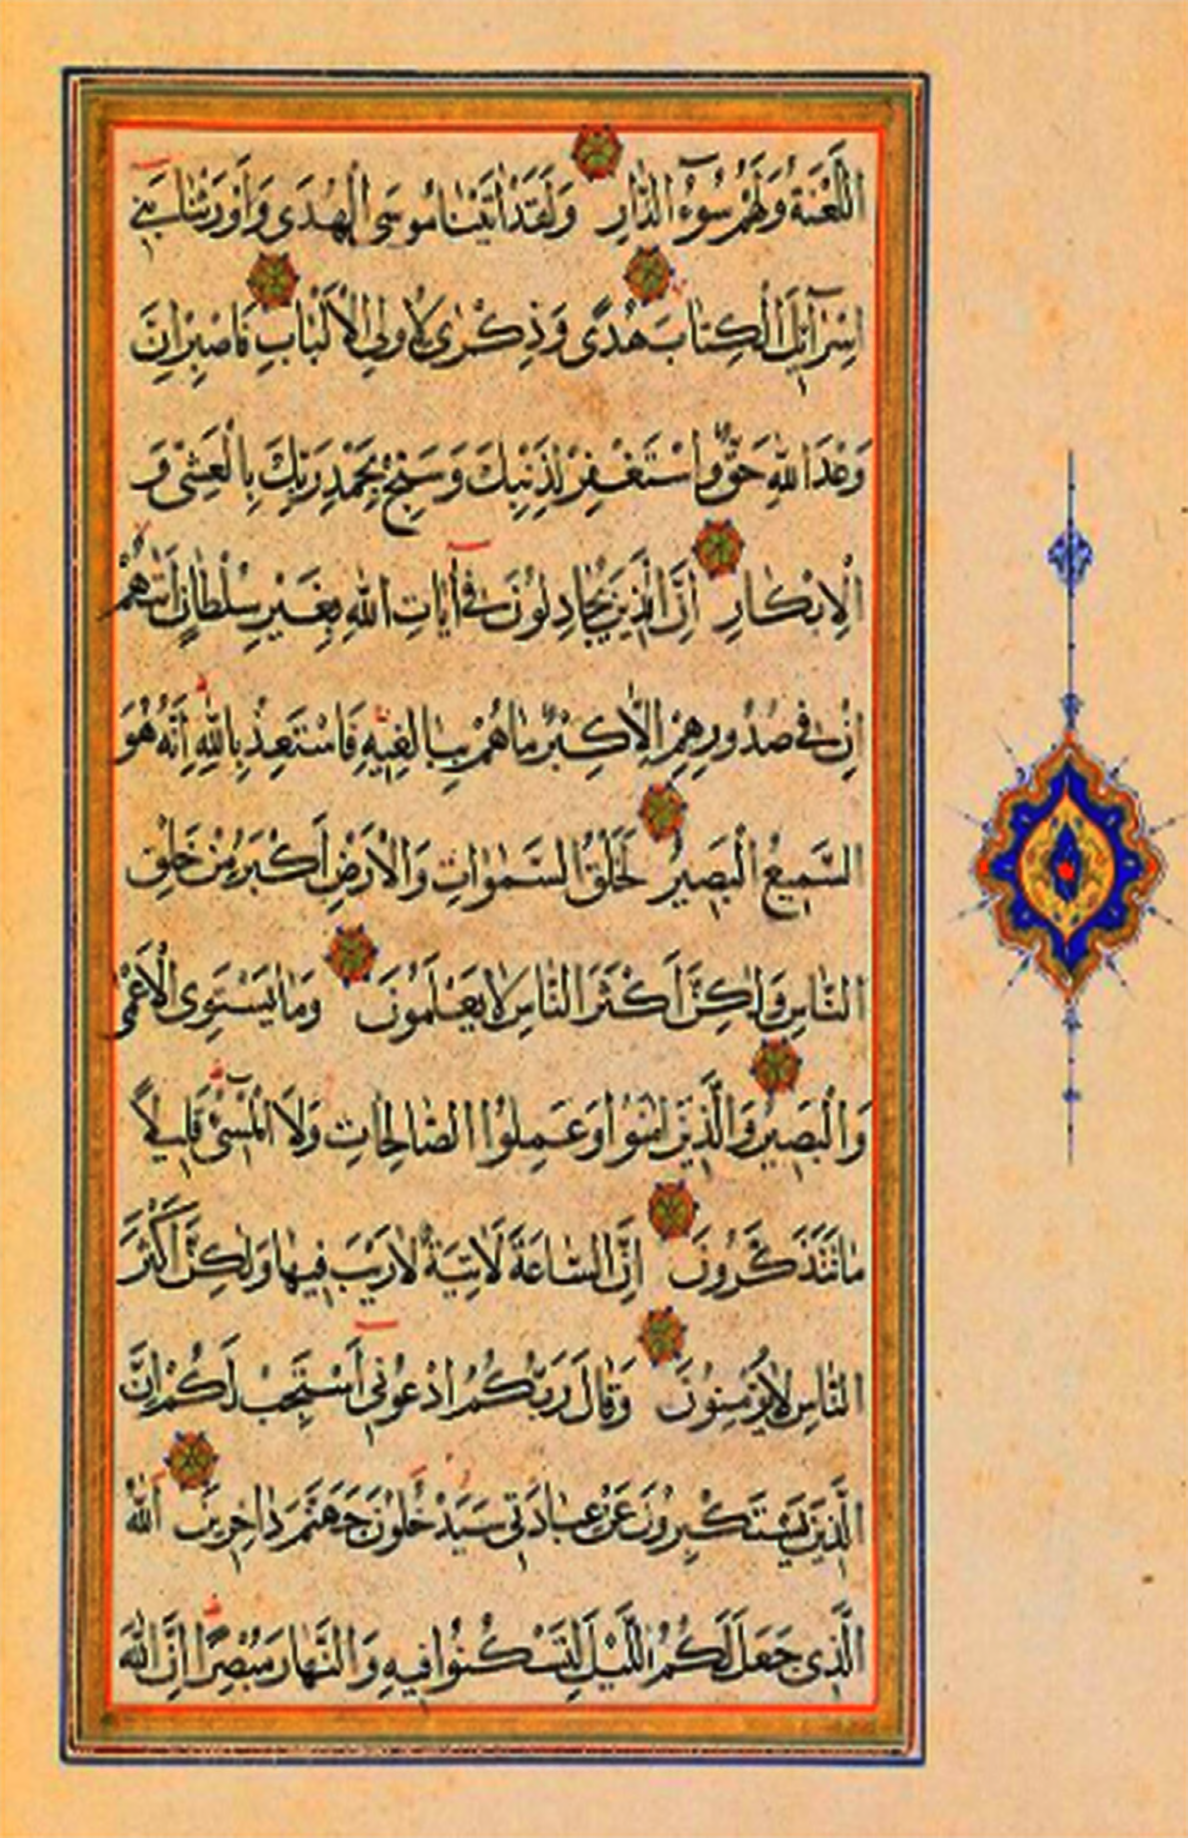 اللَّعْنَةُ وَلَهُمْ سُوٓءُ الدَّارِ وَلَقَدْ اٰتَيْنَا مُوسَى الْهُدٰى وَاَوْرَثْنَا بَنِٓى
اِسْرَآئِلَ الْكِتَابَ هُدًى وَذِكْرٰى لِاُولِى الْاَلْبَابِ فَاصْبِرْ اِنَّ
وَعْدَ اللّٰهِ حَقٌّ وَاسْتَغْفِرْ لِذَنْبِكَ وَسَبِّحْ بِحَمْدِ رَبِّكَ بِالْعَشِىِّ وَ
الْاِبْكَارِ اِنَّ الَّذِينَ يُجَادِلُونَ فِٓى اٰيَاتِ اللّٰهِ بِغَيْرِ سُلْطَانٍ اَتٰيهُمْ
اِنْ فِى صُدُورِهِمْ اِلَّا كِبْرٌ مَا هُمْ بِبَالِغِيهِ فَاسْتَعِذْ بِاللّٰهِ اِنَّهُ هُوَ
السَّمِيعُ الْبَصِيرُ لَخَلْقُ السَّمٰوَاتِ وَالْاَرْضِ اَكْبَرُ مِنْ خَلْقِ
النَّاسِ وَلٰكِنَّ اَكْثَرَ النَّاسِ لَا يَعْلَمُونَ وَمَا يَسْتَوِى الْاَعْمٰى
وَالْبَصِيرُ وَالَّذِينَ اٰمَنُوا وَعَمِلُوا الصَّالِحَاتِ وَلَا الْمُسِٓىءُ قَلِيلًا
مَا تَتَذَكَّرُونَ اِنَّ السَّاعَةَ لَاٰتِيَةٌ لَا رَيْبَ فِيهَا وَلٰكِنَّ اَكْثَرَ
النَّاسِ لَا يُؤْمِنُونَ وَقَالَ رَبُّكُمُ ادْعُونِٓى اَسْتَجِبْ لَكُمْ اِنَّ
الَّذِينَ يَسْتَكْبِرُونَ عَنْ عِبَادَتِى سَيَدْخُلُونَ جَهَنَّمَ دَاخِرِينَ اَللّٰهُ
الَّذِى جَعَلَ لَكُمُ اللَّيْلَ لِتَسْكُنُوا فِيهِ وَالنَّهَارَ مُبْصِرًا اِنَّ اللّٰهَ